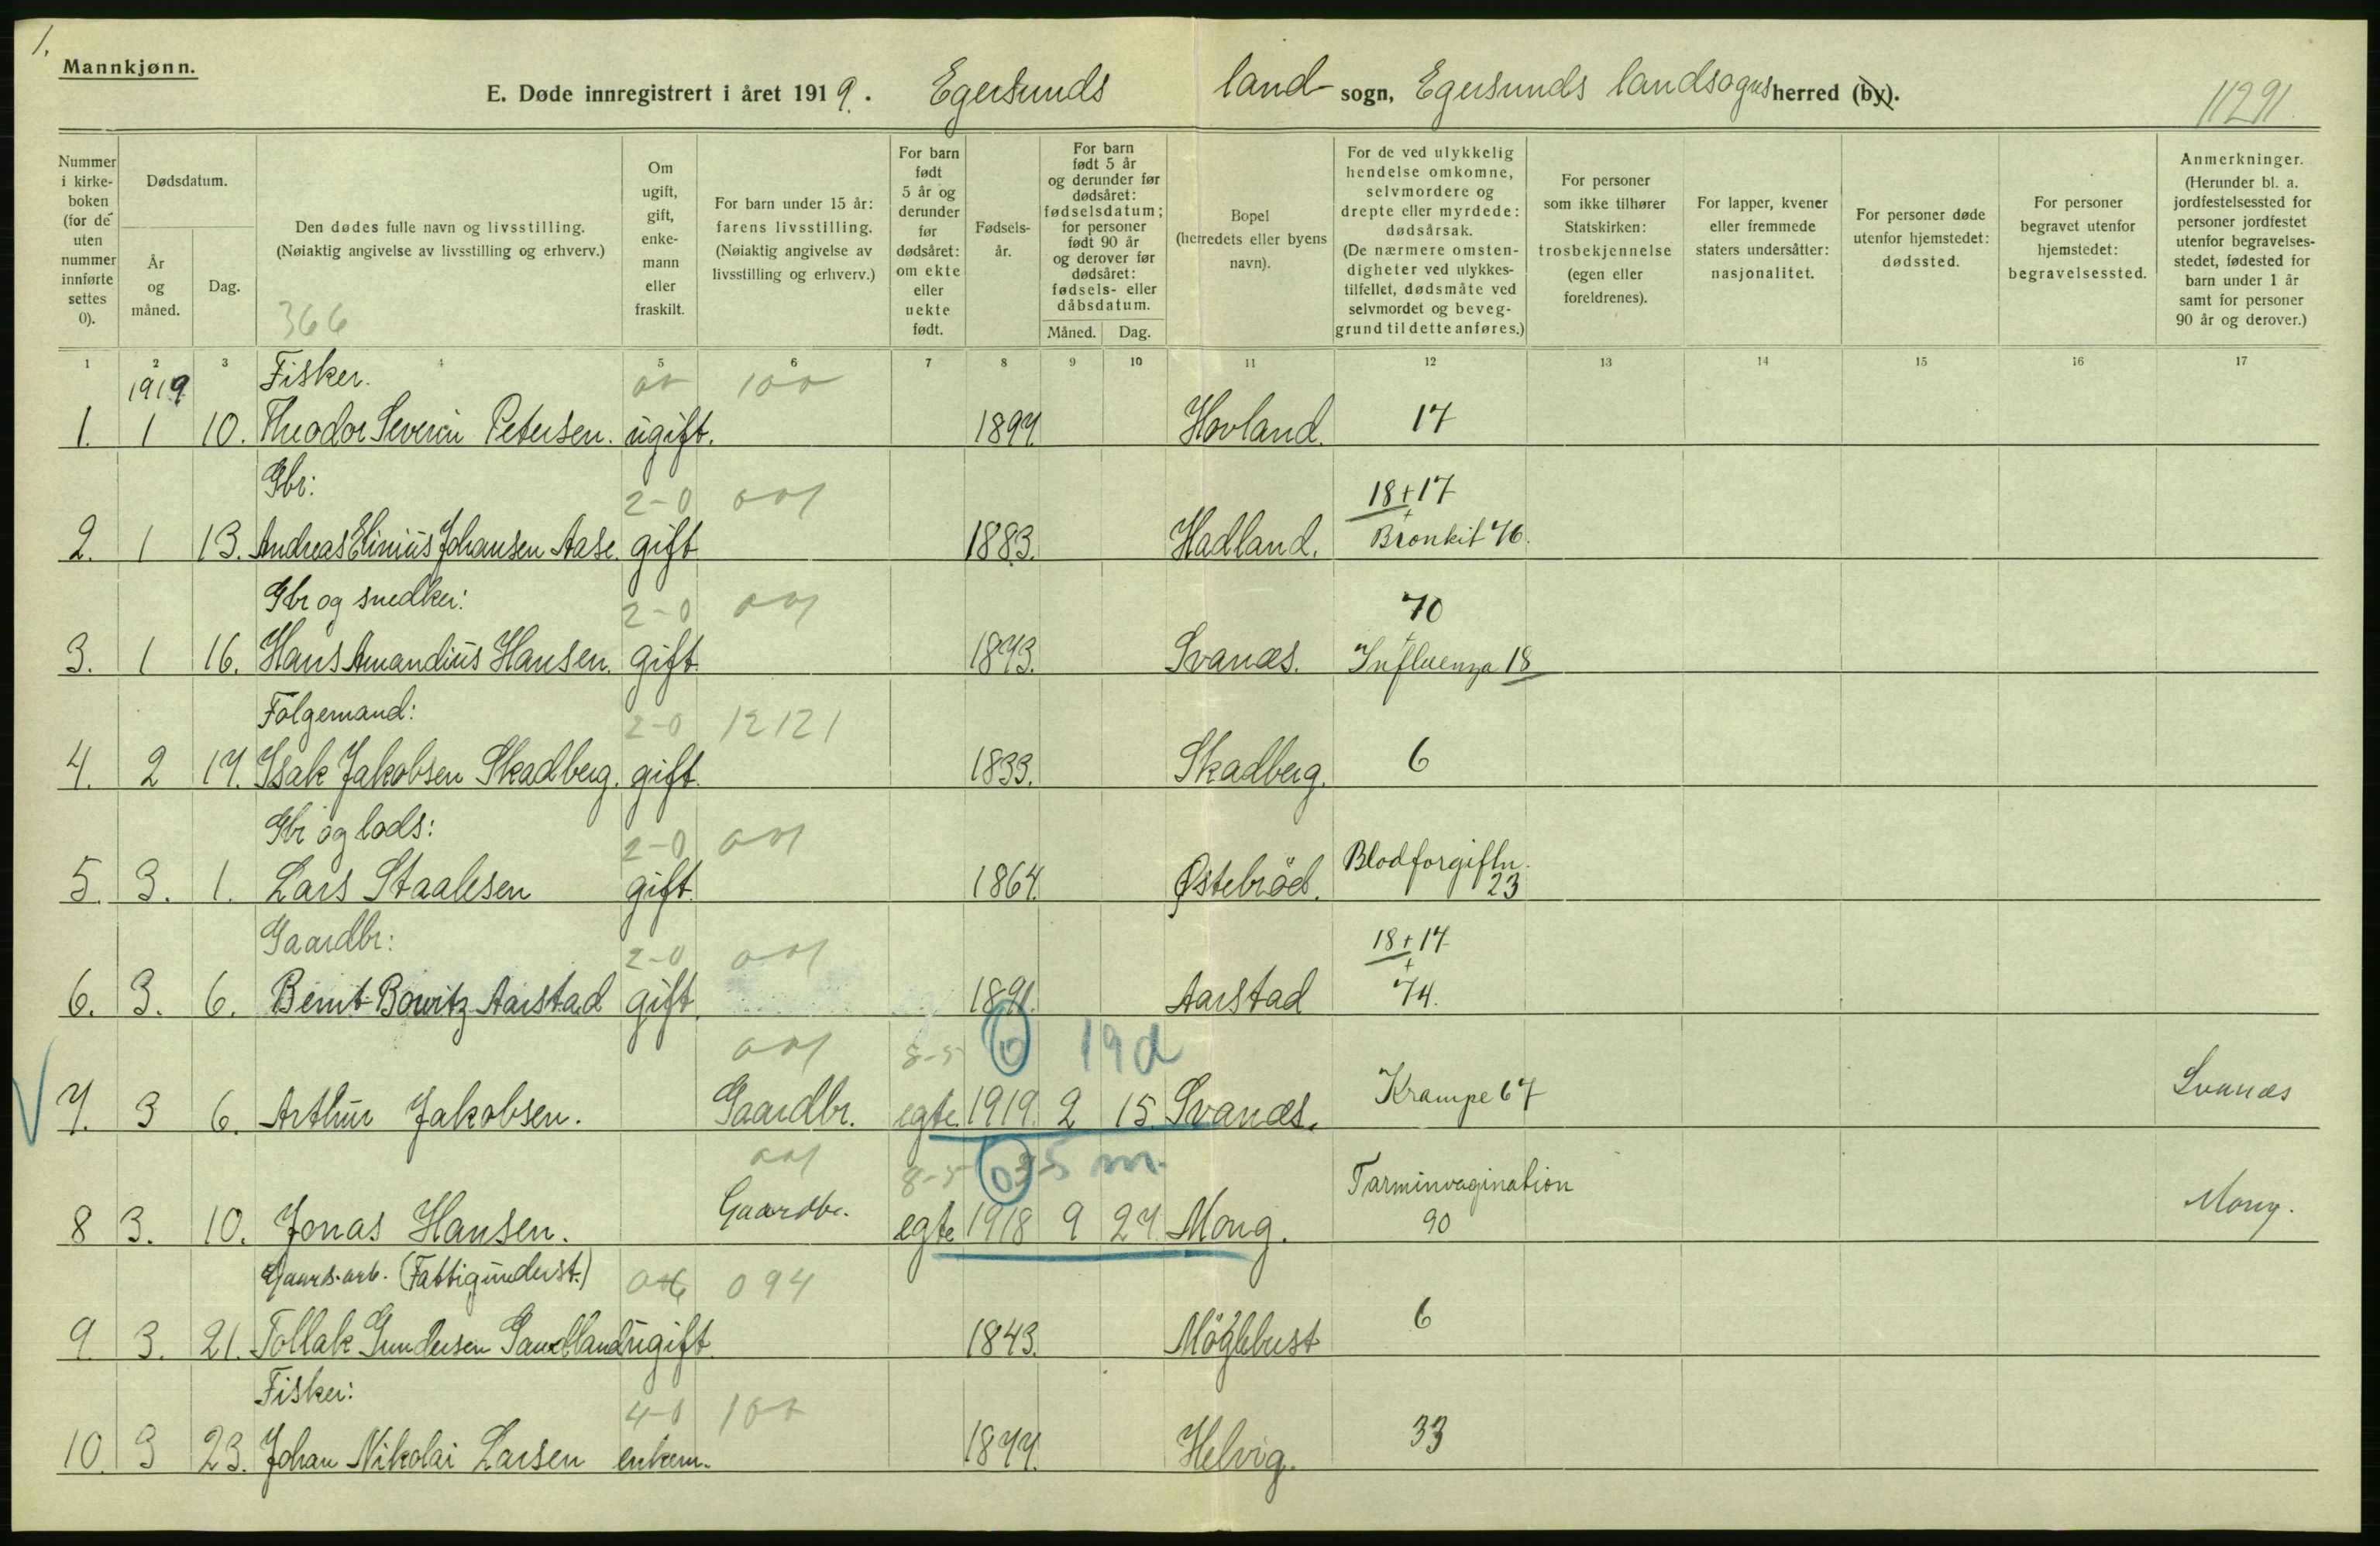 1.
Mannkjønn.
E. Døde innregistrert i året 1919. Egersunds land- sogn, Egersunds landsogns herred (by).
11291
Nummer i kirke- boken (for de uten nummer innførte settes 0).
Dødsdatum.
År og måned.
Dag.
Den dødes fulle navn og livsstilling. (Nøiaktig angivelse av livsstilling og erhverv.)
366
Om ugift, gift, enke- mann eller fraskilt.
For barn under 15 år: farens livsstilling. (Nøiaktig angivelse av livsstilling og erhverv.)
For barn født 5 år og derunder før dødsåret: om ekte eller uekte født.
Fødsels- år.
For barn født 5 år og derunder før dødsåret: fødselsdatum; for personer født 90 år og derover før dødsåret: fødsels- eller dåbsdatum.
Måned. Dag.
Bopel (herredets eller byens navn).
For de ved ulykkelig hendelse omkomne, selvmordere og drepte eller myrdede: dødsårsak. (De nærmere omsten- digheter ved ulykkes- tilfellet, dødsmåte ved selvmordet og beveg- grund til dette anføres.)
For personer som ikke tilhører Statskirken: trosbekjennelse (egen eller foreldrenes).
For lapper, kvener eller fremmede staters undersåtter: nasjonalitet.
For personer døde utenfor hjemstedet: dødssted.
For personer begravet utenfor hjemstedet: begravelsessted.
Anmerkninger. (Herunder bl. a. jordfestelsessted for personer jordfestet utenfor begravelses- stedet, fødested for barn under 1 år samt for personer 90 år og derover.)
1 2 3 4 5 6 7 8 9 10 11 12 13 14 15 16 17
1919 Fisker. 100
1. 1 10. Theodor Severin Petersen. ugift. 1897. Hovland. 17
Gbr: 2-0 001 18+17
2. 1 13. Andreas Elinius Johansen Aase. gift 1883. Hadland. + Bronkit 76.
Gbr og snedker: 2-0 001 70
3. 1 16. Hans Amandius Hansen. gift. 1873. Svanæs. + Influenza 18
Folgemand: 2-0 12121
4. 2 17. Isak Jakobsen Skadberg. gift. 1833. Skadberg. 6
Gbr og lods: 2-0 001
5. 3. 1. Lars Staalesen gift. 1864. Østebröd. Blodforgiftn. 23
Gaardbr: 2-0 001 18+17
6. 3. 6. Bernt Bowitz Aarstad gift. 1891. Aarstad + 74.
001 8-5 0 19d
7. 3 6. Arthur Jakobsen. Gaardbr. egte. 1919. 2 15. Svanæs. Krampe 67 Svanæs
001 8-5 03 5 m.
8 3. 10. Jonas Hansen. Gaardbr. egte 1918 9 27. Mong. Tarminvagination 90 Mong.
Gaards.arb. (Fattigunderst.) 094
9. 3. 21. Tollak Gundersen Gaudland ugift 1843. Möglebust 6
Fisker: 4-0 100
10. 3 23. Johan Nikolai Larsen enkem. 1877. Helvig. 33